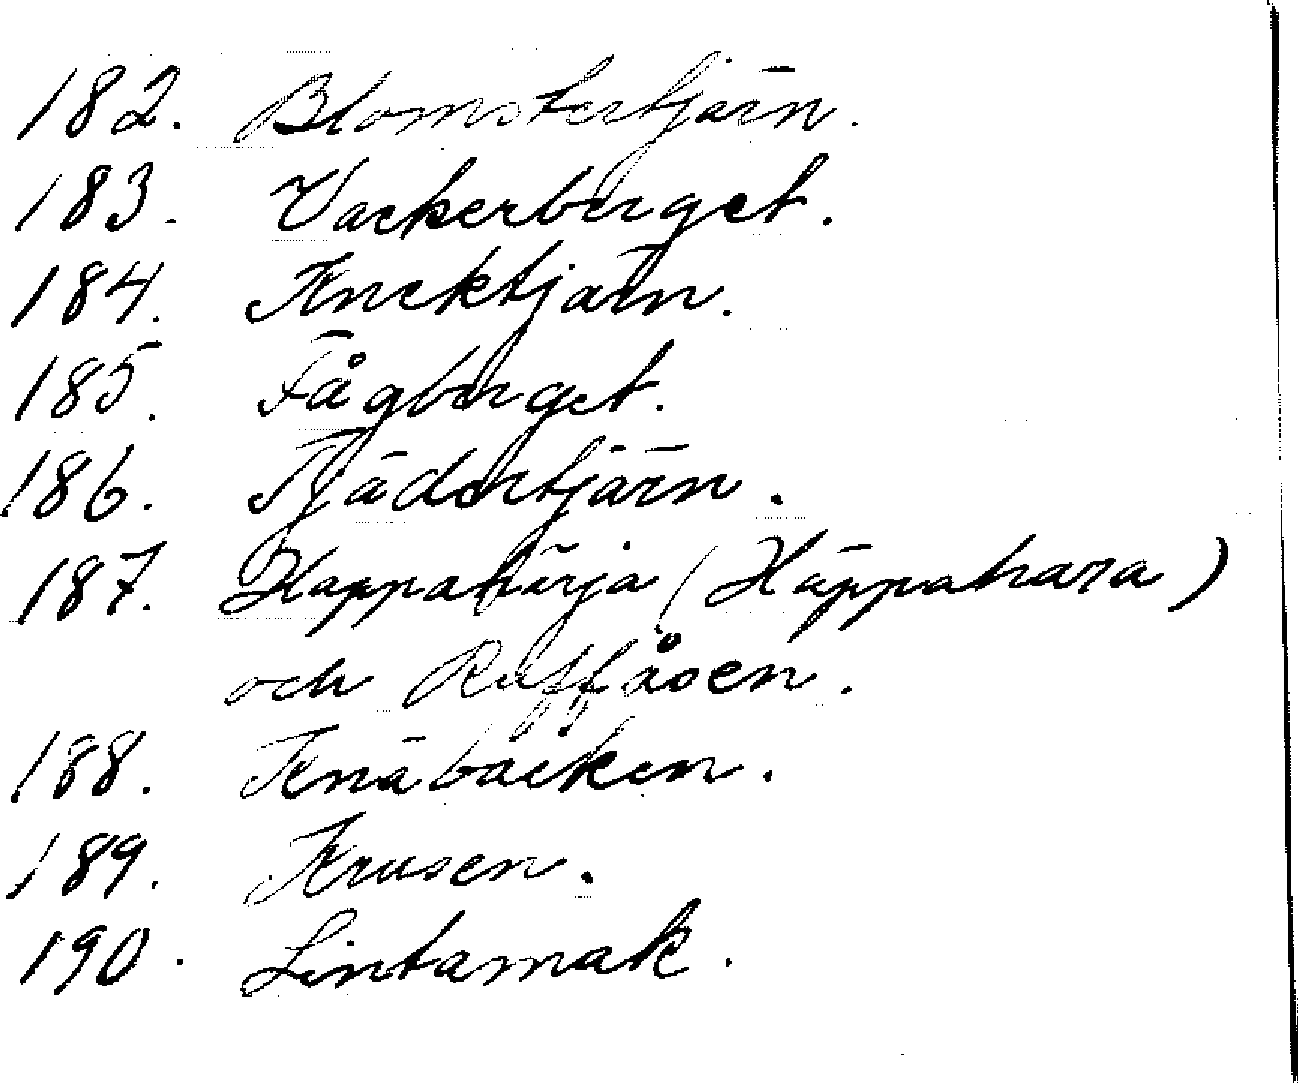 182. Blomstertjärn.
183. Vackerberget.
184. Knektjärn.
185. Fågberget.
186. Tjädertjärn.
187. Kappabärja (Häppahara)
och Ruffåsen.
188. Knäbäcken.
189. Krusen.
190. Lintamak.